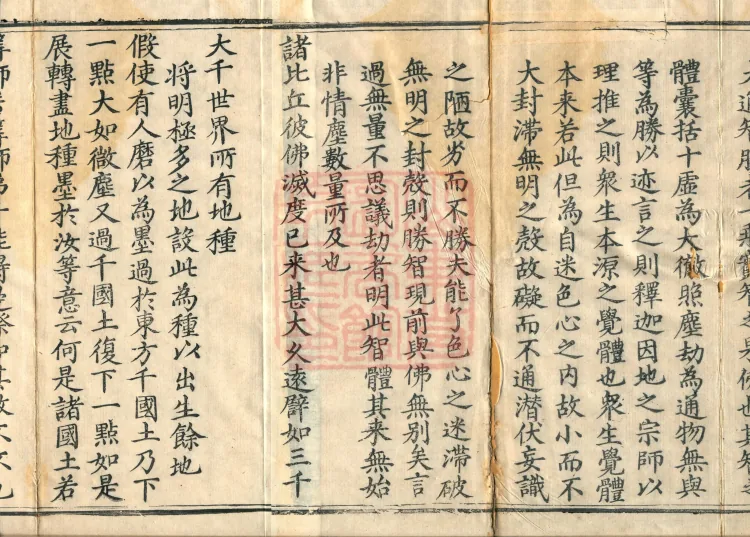 體囊括十虛為大徹照塵劫為通物無與
等為勝以迹言之則釋迦因地之宗師以
理推之則衆生本源之覺體也衆生覺體
本来若此但為自迷色心之内故小而不
大封滯無明之殼故礙而不通潜伏妄識
之陋故劣而不勝夫能了色心之迷滯破
無明之封殼則勝智現前與佛無別矣言
過無量不思議劫者明此智體其来無始
非情塵數量所及也
諸比丘彼佛滅度已来甚大久遠譬如三千
大千世界所有地種
将明極多之地設此為種以出生餘地
假使有人磨以為墨過於東方千國土乃下
一點大如微塵又過千國土復下一點如是
展轉盡地種墨於汝等意云何是諸國土若